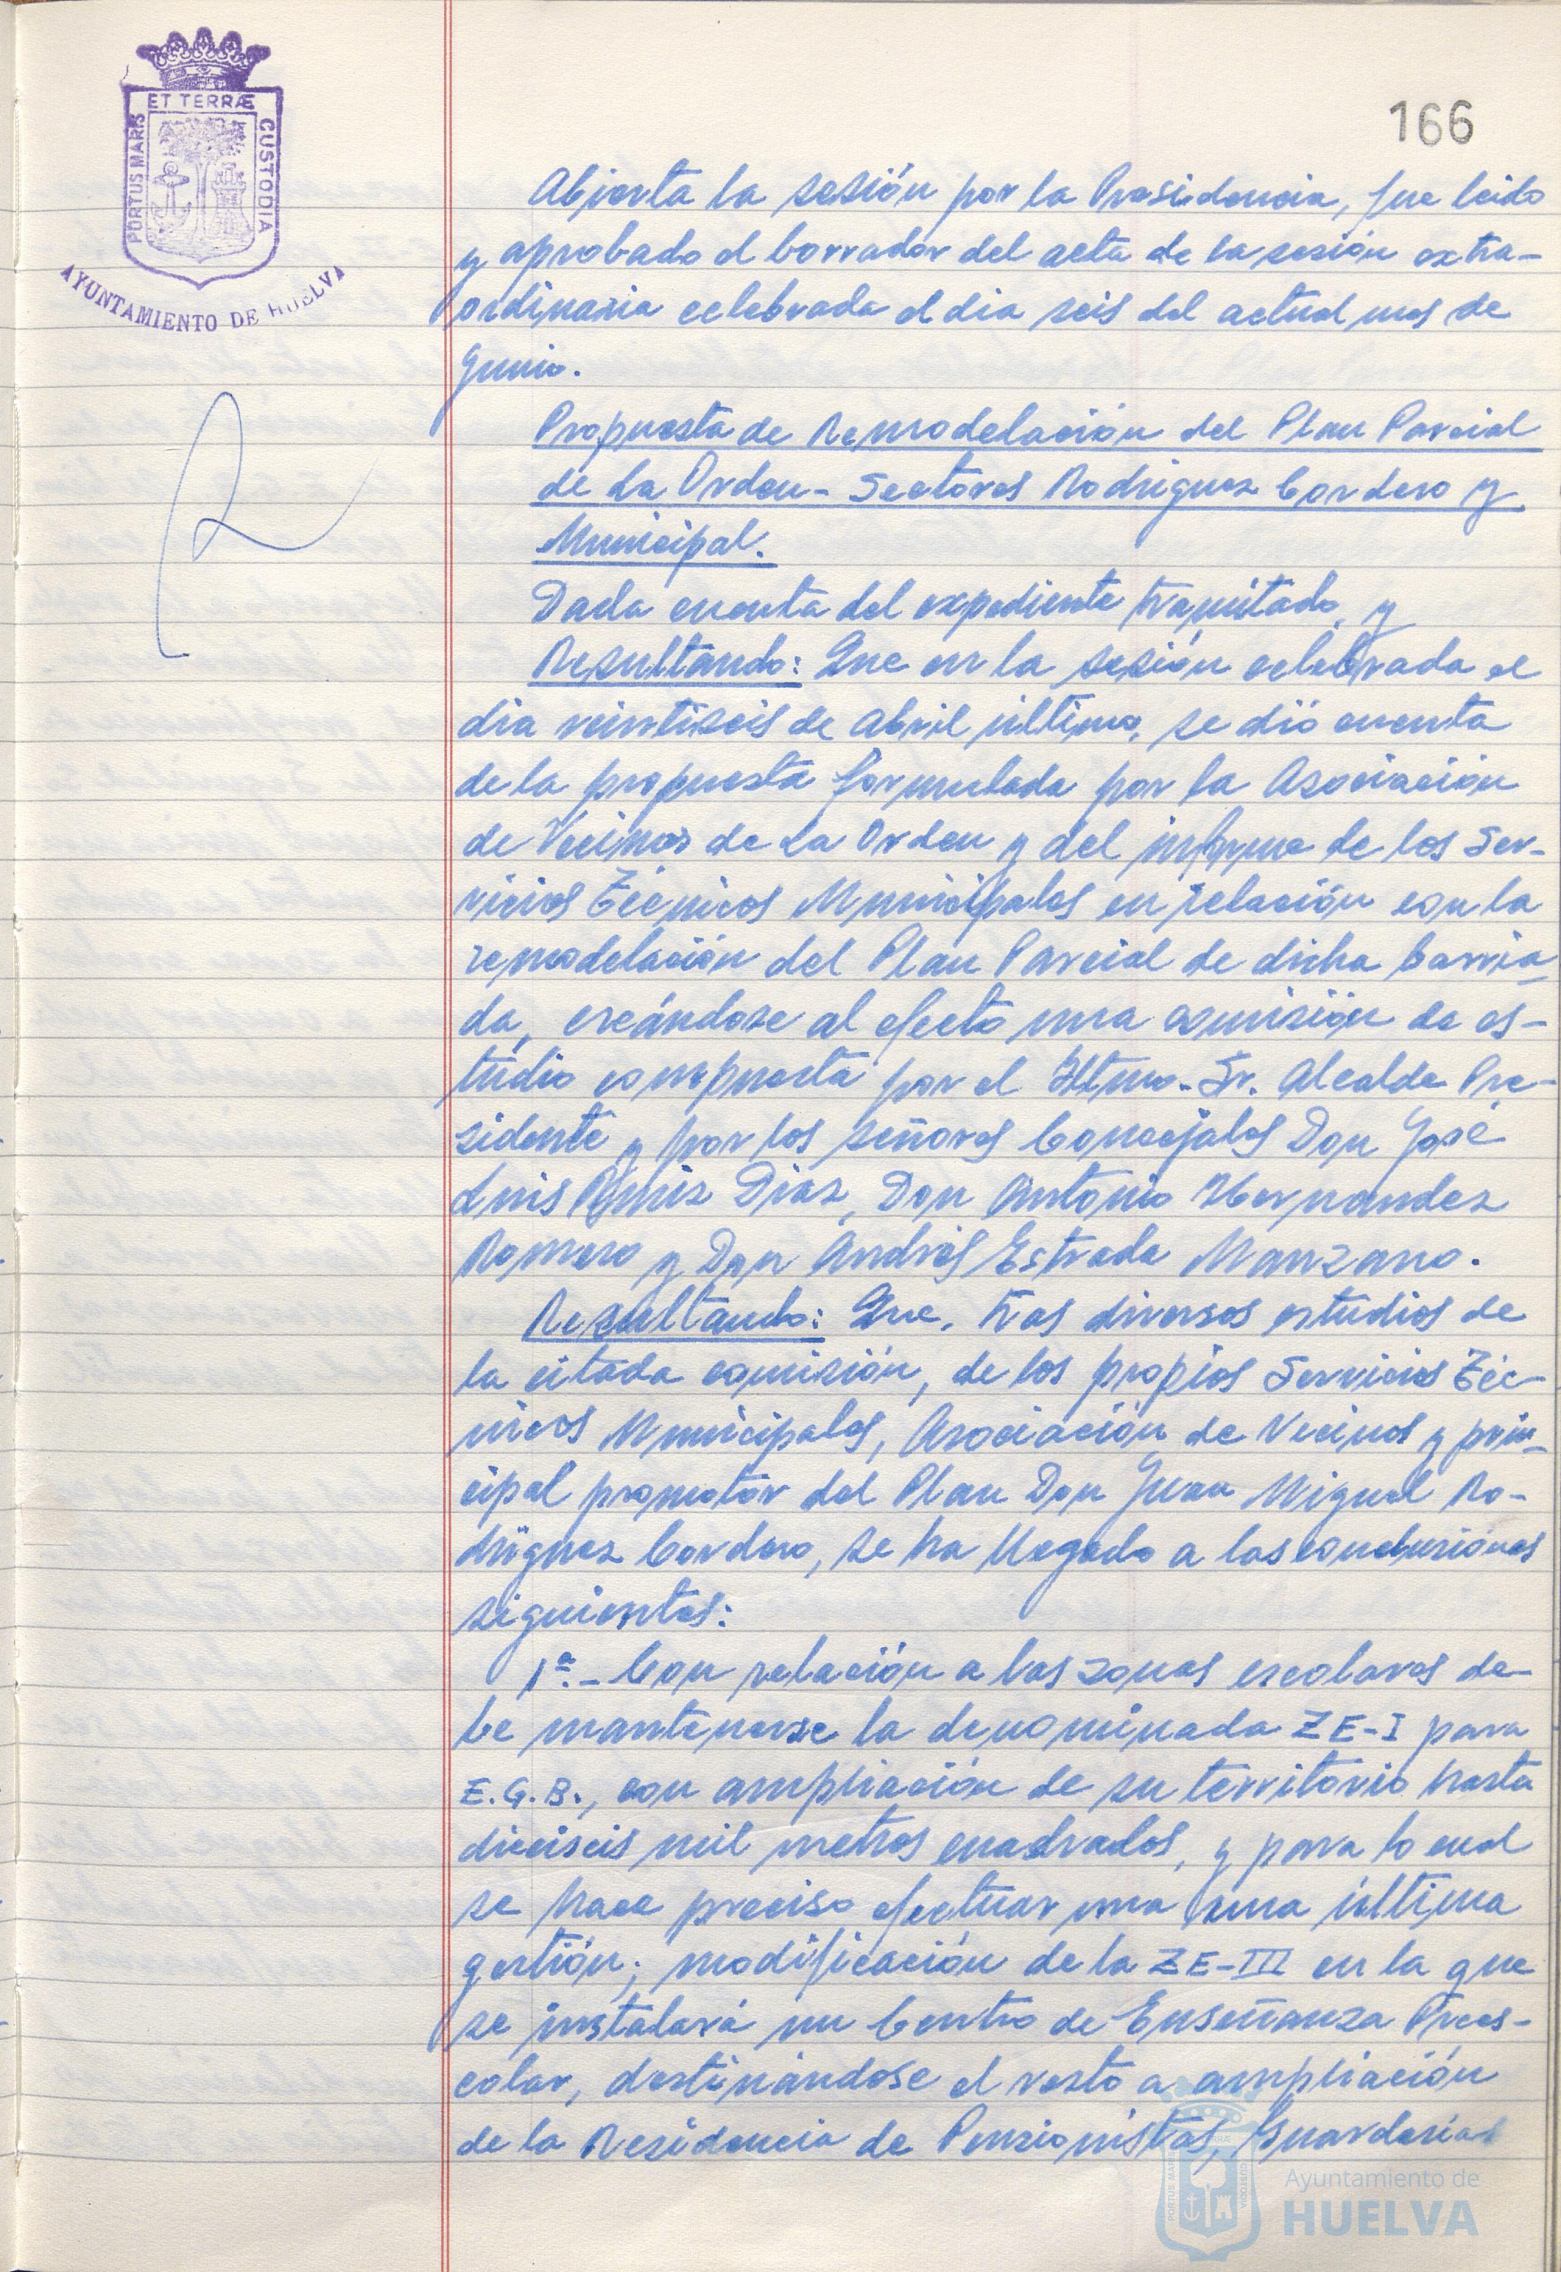 ET TERRÆ
PORTUS MARIS
CUSTODIA
AYUNTAMIENTO DE HUELVA
166
Abierta la sesión por la Presidencia, fue leido
y aprobado el borrador del acta de la sesión extra-
ordinaria celebrada el dia seis del actual mes de
Junio.
Propuesta de Remodelación del Plan Parcial
de La Orden- Sectores Rodriguez Cordero y
Municipal.
Dada cuenta del expediente tramitado, y
Resultando: Que en la sesión celebrada el
dia veintiseis de Abril último, se dió cuenta
de la propuesta formulada por la Asociación
de Vecinos de La Orden y del informe de los Ser-
vicios Técnicos Municipales en relación con la
remodelación del Plan Parcial de dicha barria-
da, creándose al efecto una comisión de es-
tudio compuesta por el Iltmo. Sr. Alcalde Pre-
sidente y por los señores Concejales Don José
Luis Ruiz Diaz, Don Antonio Hernandez
Romero y Don Andrés Estrada Manzano.
Resultando: Que, tras diversos estudios de
la citada comisión, de los propios Servicios Téc-
nicos Municipales, Asociación de Vecinos y prin-
cipal promotor del Plan Don Juan Miguel Ro-
driguez Cordero, se ha llegado a las conclusiónes
siguientes:
1ª.- Con relación a las zonas escolares de-
be mantenerse la denominada ZE-I para
E.G.B., con ampliación de su territorio hasta
dieciseis mil metros cuadrados, y para lo cual
se hace preciso efectuar una una última
gestión; modificación de la ZE-III en la que
se instalará un Centro de Enseñanza Prees-
colar, destinándose el resto a ampliación
de la Residencia de Pensionistas, Guarderias
Ayuntamiento de
HUELVA